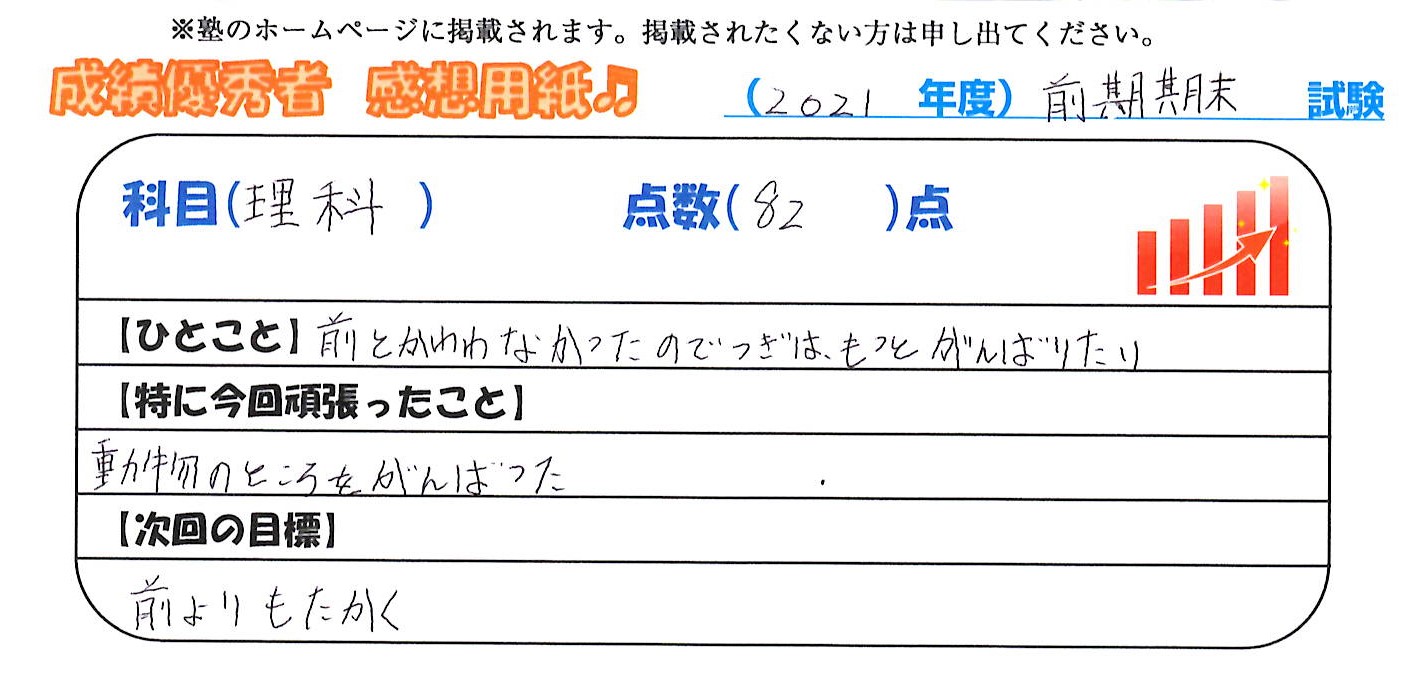 ※塾のホームページに掲載されます。掲載されたくない方は申し出てください。
成績優秀者 感想用紙♫ (2021 年度) 前期期末 試験
科目(理科) 点数(82)点
【ひとこと】前とかわわなかったのでつぎは、もっとがんばりたり
【特に今回頑張ったこと】
動物のところをがんばった
【次回の目標】
前よりもたかく